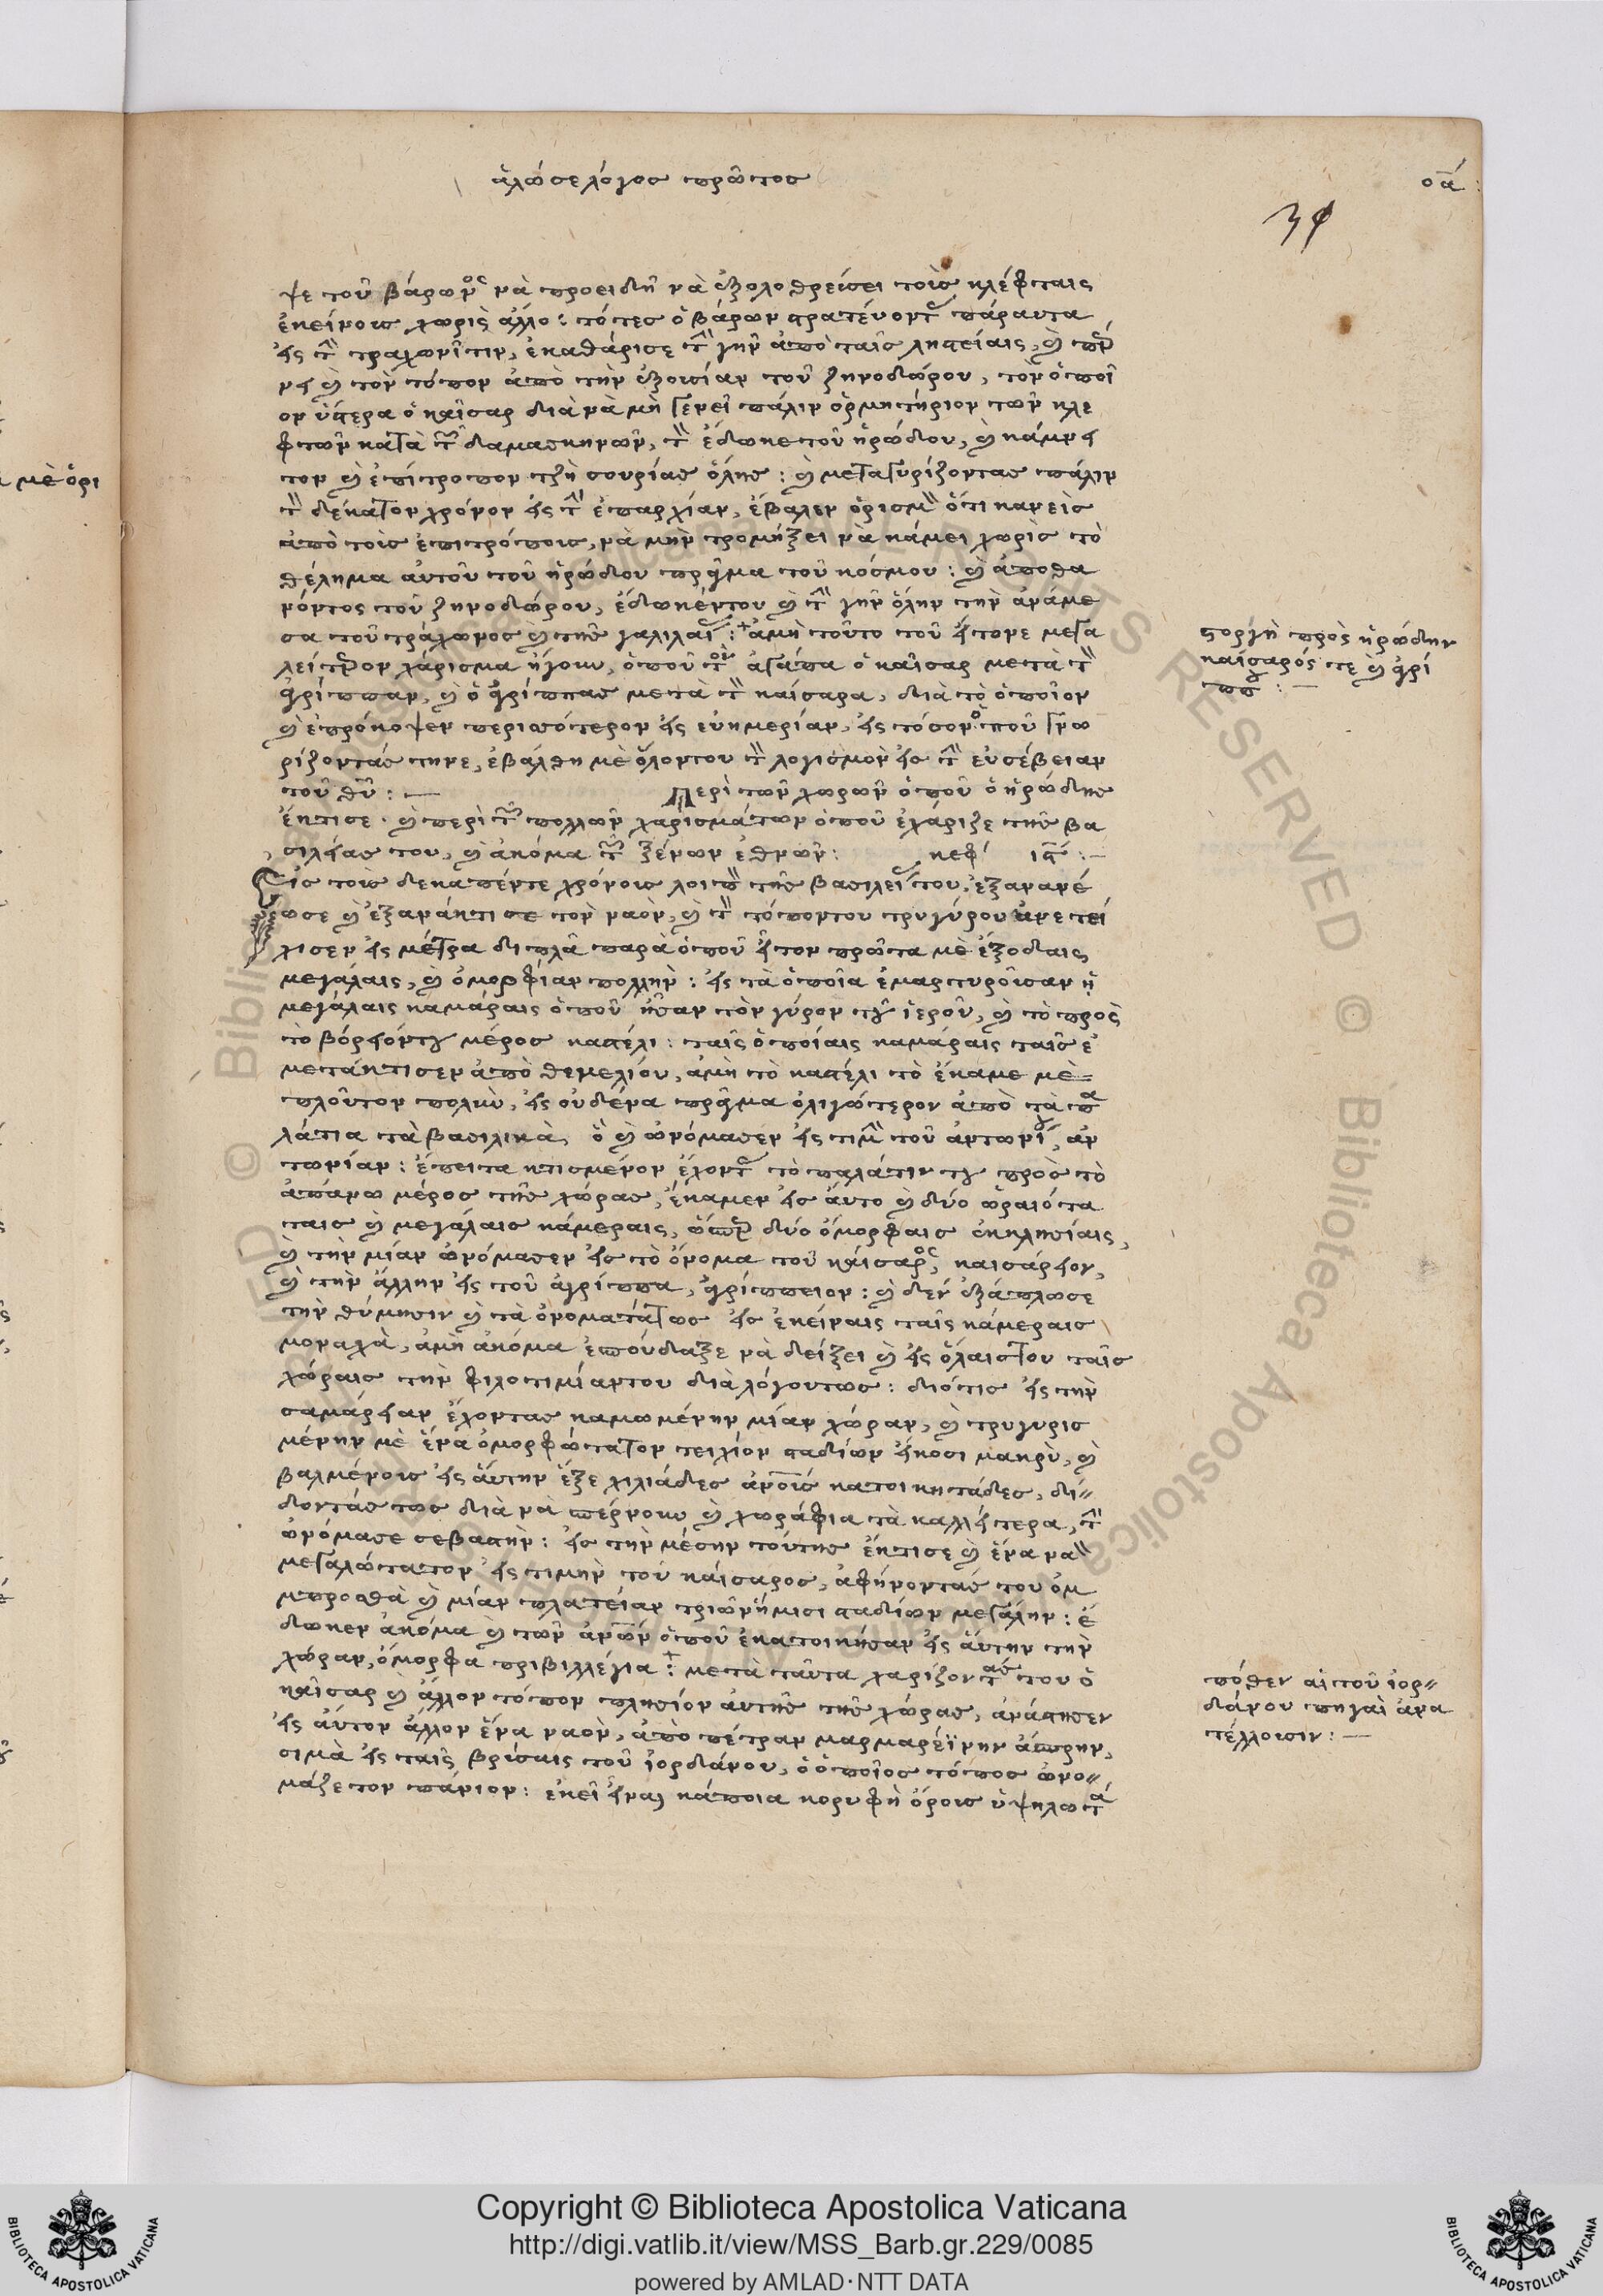 ἁλώσε λόγος πρῶτος
οα
ψε τοῦ βάρωνος νὰ προειδῆ νὰ ἐξολοθρεύσει τοὺς κλέφταις
ἐκείνους χωρὶς ἄλλο: τότες ὁ βάρων στρατένοντας πάραυτα
εἰς τὴν τραχωνῖτιν, ἐκαθάρισε τὴν γῆν ἀπὸ ταῖς ληστείαις, καὶ
καὶ τὸν τόπον ἀπὸ τὴν ἐξουσίαν τοῦ ζηνοδώρου, τὸν ὁποῖ
ον ὕστερα ὁ καῖσαρ διὰ νὰ μὴ γενεῖ πάλιν ὁρμητήριον τῶν κλε
φτῶν κατὰ τῶν δαμασκηνῶν, τὸν ἔδωκε τοῦ ἡρώδου, καὶ κάμν
τον καὶ ἐπίτροπον τζὴ σουρίας ὅλης: καὶ μεταγυρίζοντας πάλιν
τὸν δέκατον χρόνον εἰς τὴν ἐπαρχίαν, ἔβαλεν ὁρισμὸν ὅτι κανεὶς
ἀπὸ τοὺς ἐπιτρόπους, νὰ μὴν τρομήξει νὰ κάμει χωρὶς τὸ
θέλημα αὐτοῦ τοῦ ἡρώδου πρᾶγμα τοῦ κόσμου: καὶ ἀποθα
νόντος τοῦ ζηνοδώρου, ἐδωκέντου καὶ τὴν γῆν ὅλην τὴν ἀνάμε
σα τοῦ τράχωνος καὶ τῆς γαλιλαίας: ἀμὴ τοῦτο τοῦ ἤτονε μεγα
λείτερον χάρισμα ἤγουν, ὁποῦ τὸν ἀγάπα ὁ καῖσαρ μετὰ τὸν
ἀγρίππαν, καὶ ὁ ἀγρίππας μετὰ τὸν καίσαρα, διὰ τὸ ὁποῖον
καὶ ἐπρόκοψεν περισσότερον εἰς εὐημερίαν, εἰς τόσον ὁποῦ γνω
ρίζοντάς τηνε, ἐβάλθη μὲ ὅλοντου τὸν λογισμὸν εἰς τὴν εὐσέβειαν
τοῦ θῦ:
Περὶ τῶν χωρῶν ὁποῦ ὁ ἡρώδης
ἔκτισε· καὶ περὶ τῶν πολλῶν χαρισμάτων ὁποῦ ἐχάριζε τῆς βα
σιλείας του, καὶ ἀκόμα τῶν ξένων ἐθνῶν: κεφ ις:
Εἰς τοὺς δεκαπέντε χρόνους λοιπὸν τῆς βασιλείας του, ἐξανανέ
ωσε καὶ ἐξανάκτισε τὸν ναὸν, καὶ τὸν τόποντου τρυγύρου ἀνετεί
χισεν εἰς μέτρα διπλᾶ παρὰ ὁποῦ ἦτον πρῶτα μὲ ἐξοδίαις
μεγάλαις, καὶ ὀμορφίαν πολλὴν: εἰς τὰ ὁποῖα ἐμαρτυροῦσαν ἡ
μεγάλαις καμάραις ὁποῦ ἦσαν τὸν γύρον τοῦ ἱεροῦ, καὶ τὸ πρὸς
τὸ βόρειόντου μέρος καστέλι: ταῖς ὁποίαις καμάραις ταῖς ἐ
μετάκτισεν ἀπὸ θεμελίου, ἀμὴ τὸ καστέλι τὸ ἔκαμε μὲ
πλοῦτον πολὺν, εἰς οὐδένα πρᾶγμα ὀλιγώτερον ἀπὸ τὰ πα
λάτια τὰ βασιλικὰ, ὃ καὶ ὠνόμασεν εἰς τιμὴν τοῦ ἀντωνίου, ἀν
τωνίαν: ἔπειτα κτισμένον ἔχοντας τὸ παλάτιν του πρὸς τὸ
ἀπάνω μέρος τῆς χώρας, ἔκαμεν εἰς αὐτο καὶ δύο ὡραιότα
ταις καὶ μεγάλαις κάμεραις, ὥσπερ δύο ὄμορφαις ἐκκλησίαις,
καὶ τὴν μίαν ὠνόμασεν εἰς τὸ ὄνομα τοῦ καίσαρος, καισάρειον,
καὶ τὴν ἄλλην εἰς τοῦ ἀγρίππα, ἀγρίππειον: καὶ δὲν ἐξάπλωσε
τὴν θύμησιν καὶ τὰ ὀνοματάτως εἰς ἐκείναις ταῖς κάμεραις
μοναχὰ, ἀμὴ ἀκόμα ἐσπούδαξε νὰ δείξει καὶ εἰς ὅλαιστου ταῖς
χώραις τὴν φιλοτιμίαντου διὰ λόγουτως: διότις εἰς τὴν
σαμάρειαν ἔχοντας καμωμένην μίαν χώραν, καὶ τρυγυρισ
μένην μὲ ἕνα ὀμορφώτατον τειχίον σταδίων εἴκοσι μακρὺ, καὶ
βαλμένους εἰς αὔτην ἕξε χιλιάδες ἀνοὺς κατοικητάδες, δί
δοντάς τως διὰ νὰ παίρνουν καὶ χωράφια τὰ καλλιότερα, τὴν
ὠνόμασε σεβαστὴν: εἰς τὴν μέσην τούτης ἔκτισε καὶ ἕνα ναὸν
μεγαλώτατον εἰς τιμὴν τοῦ καίσαρος, ἀφήνοντάς του ὀμ
μπροσθὰ καὶ μίαν πλατείαν τριῶν ἥμισι σταδίων μεγάλην: ἔ
δωκεν ἀκόμα καὶ τῶν ἀνων ὁποῦ ἐκατοικήσαν εἰς αὔτην τὴν
χώραν, ὄμορφα πριβιλλέγια: μετὰ ταῦτα χαρίζοντάς του ὁ
καῖσαρ καὶ ἄλλον τόπον πλησίον αὐτῆς τῆς χώρας, ἀνάστησεν
εἰς αὔτον ἄλλον ἕνα ναὸν, ἀπὸ πέτραν μαρμαρέϊνην ἄσπρην,
σιμὰ εἰς ταῖς βρύσαις τοῦ ἰορδάνου, ὁ ὁποῖος τόπος ὠνο
μάζετον πάνιον: ἐκεῖ εἶναι κάποια κορυφὴ ὄρους ὑψηλωτά
στοργὴ πρὸς ἡρώδην
καίσαρός τε καὶ ἀγρί
ππου:
πόθεν αἱ τοῦ ἰορ
δάνου πηγαὶ ἀνα
τέλλουσιν:
μὲ ὁρι
Copyright © Biblioteca Apostolica Vaticana
http://digi.vatlib.it/view/MSS_Barb.gr.229/0085
powered by AMLAD·NTT DATA
BIBLIOTECA APOSTOLICA VATICANA
BIBLIOTECA APOSTOLICA VATICANA